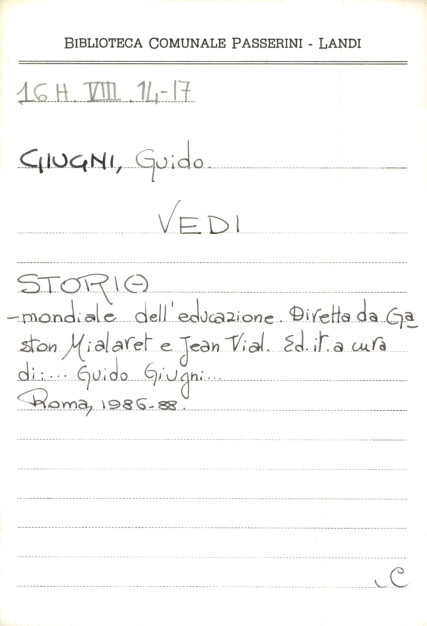 BIBLIOTECA COMUNALE PASSERINI - LANDI
16 H. VIII. 14-17
GIUGNI, Guido.
VEDI
STORIA
-mondiale dell'educazione. Diretta da Ga
ston Mialaret e Jean Vial. Ed. it. a cura
di:... Guido Giugni...
Roma, 1986-88.
C